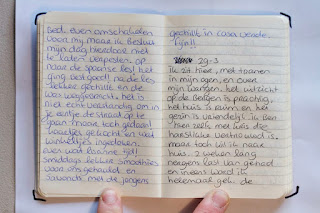 bed. even omschakelen
voor mij, maar ik besluit
mijn dag hierdoor niet
te laten verpesten. op
naar de spaanse les! het
ging best goed! na de les
lekker gechilld en de
was weggebracht. het is
niet echt verstandig om in
je eentje de straat op te
gaan maar toch gedaan!
kaartjes gekocht en wat
winkeltjes ingedoken.
even wat lekkers gehaald!
smiddags lekker smoothies
voor ons gehaald en
s'avonds met de jongens
gechilld in casa verde.
Fijn!!
29-3
ik zit hier, met tranen
in mijn ogen, en over
mijn wangen. het uitzicht
op de bergen is prachtig,
het huis is ruim en het
gezin is vriendelijk. ik ben
hier zelfs met luis die
hartstikke vertrouwd is.
maar toch wil ik naar
huis. 2 weken lang
nergens last van gehad
en ineens word ik
helemaal gek. de